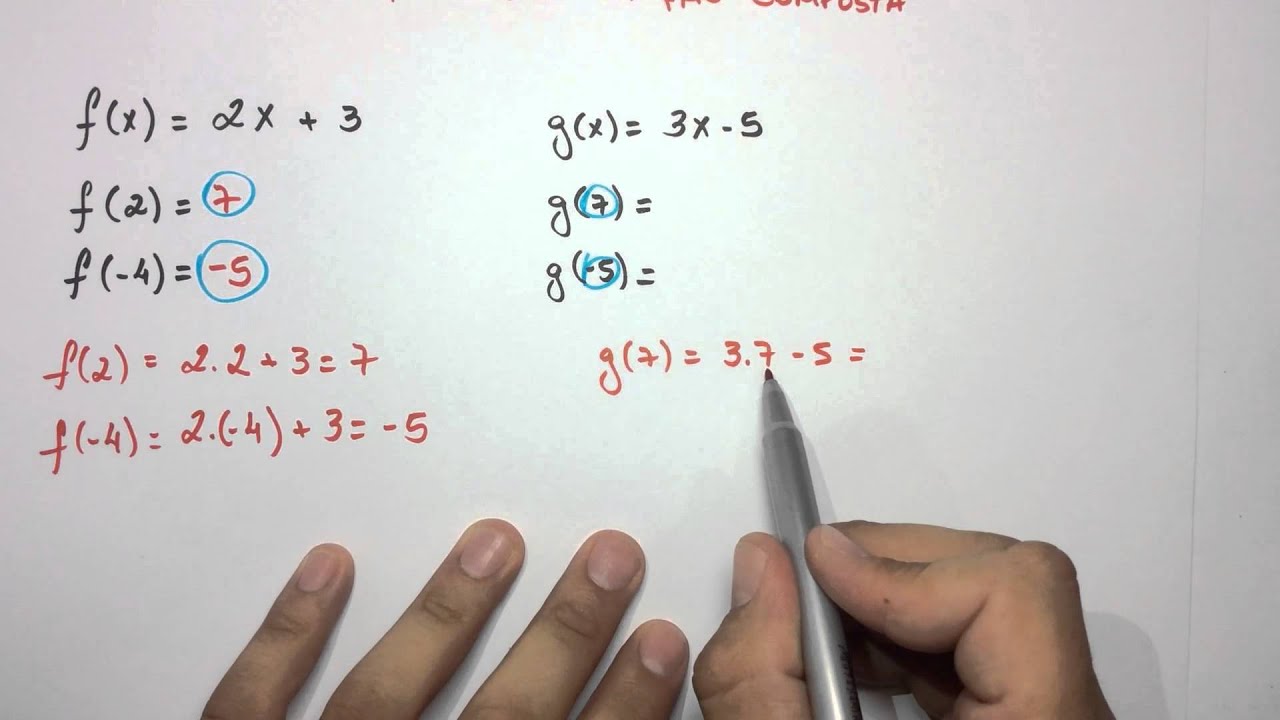 COMPOSTA
f(x) = 2x + 3
f(2) = 7
f(-4) = -5
f(2) = 2.2 + 3 = 7
f(-4) = 2.(-4) + 3 = -5
g(x) = 3x - 5
g(7) =
g(-5) =
g(7) = 3.7 - 5 =